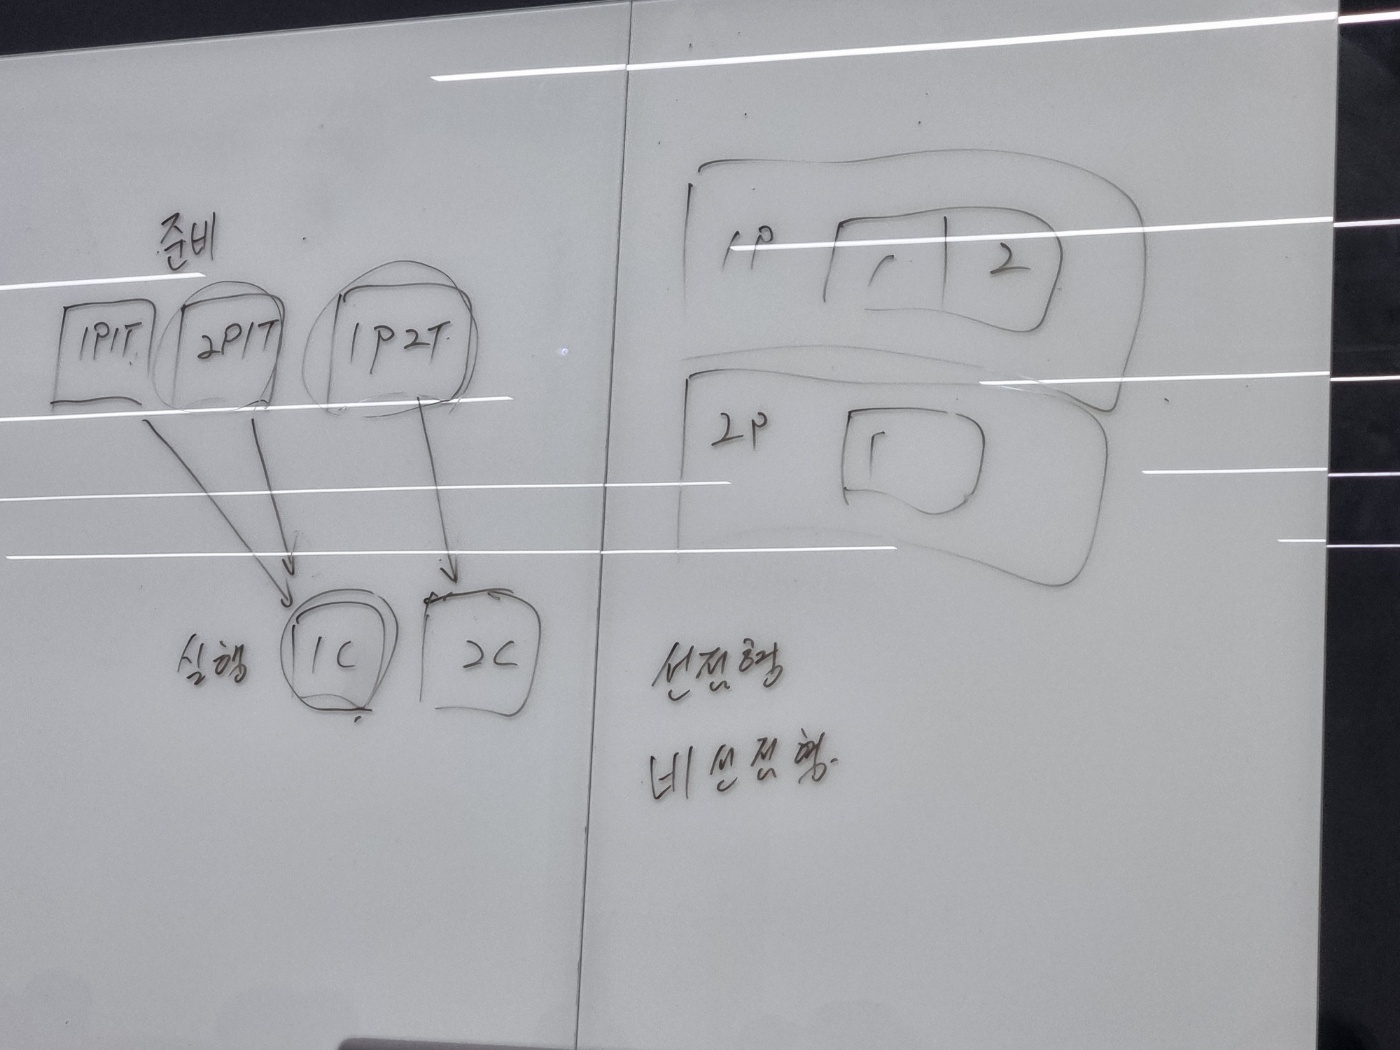 준비
1P1T 2P1T 1P2T
실행 1C 2C
1P 1 2
2P 1
선점형
비선점형.